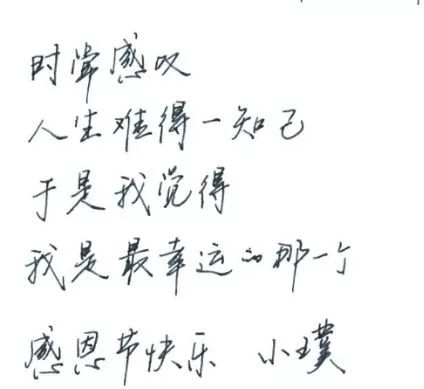 时常感叹
人生难得一知己
于是我觉得
我是最幸运的那一个
感恩节快乐 小璞